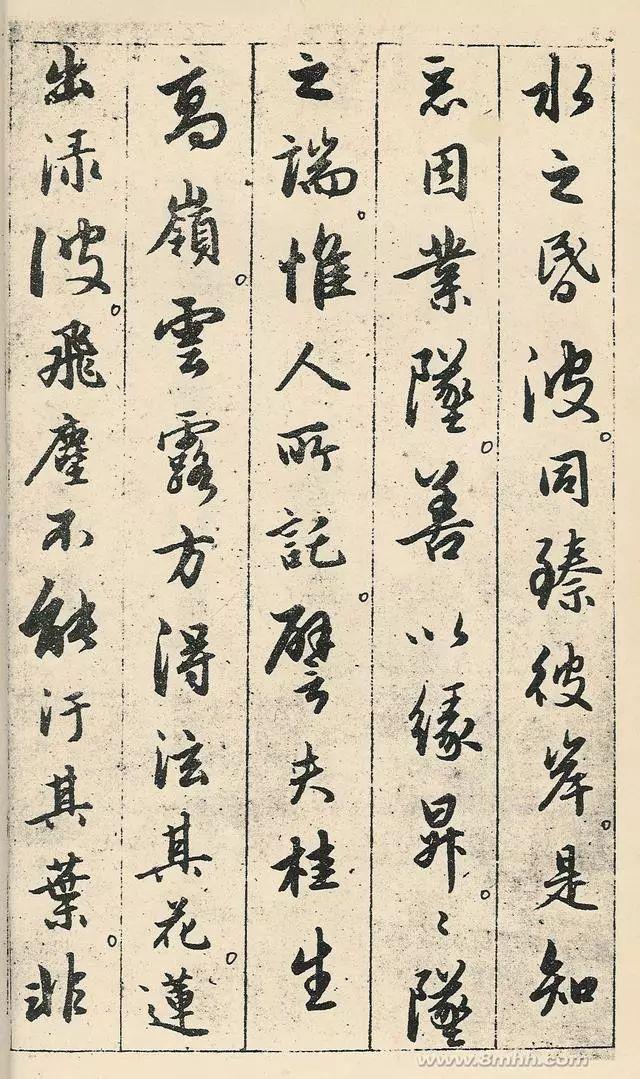 水之昏波。同臻彼岸。是知
惡因業墜。善以緣昇。〻墜
之端。惟人所託。譬夫桂生
高嶺。雲露方得泫其花。蓮
出淥波。飛塵不能汙其葉。非
www.8mhh.com